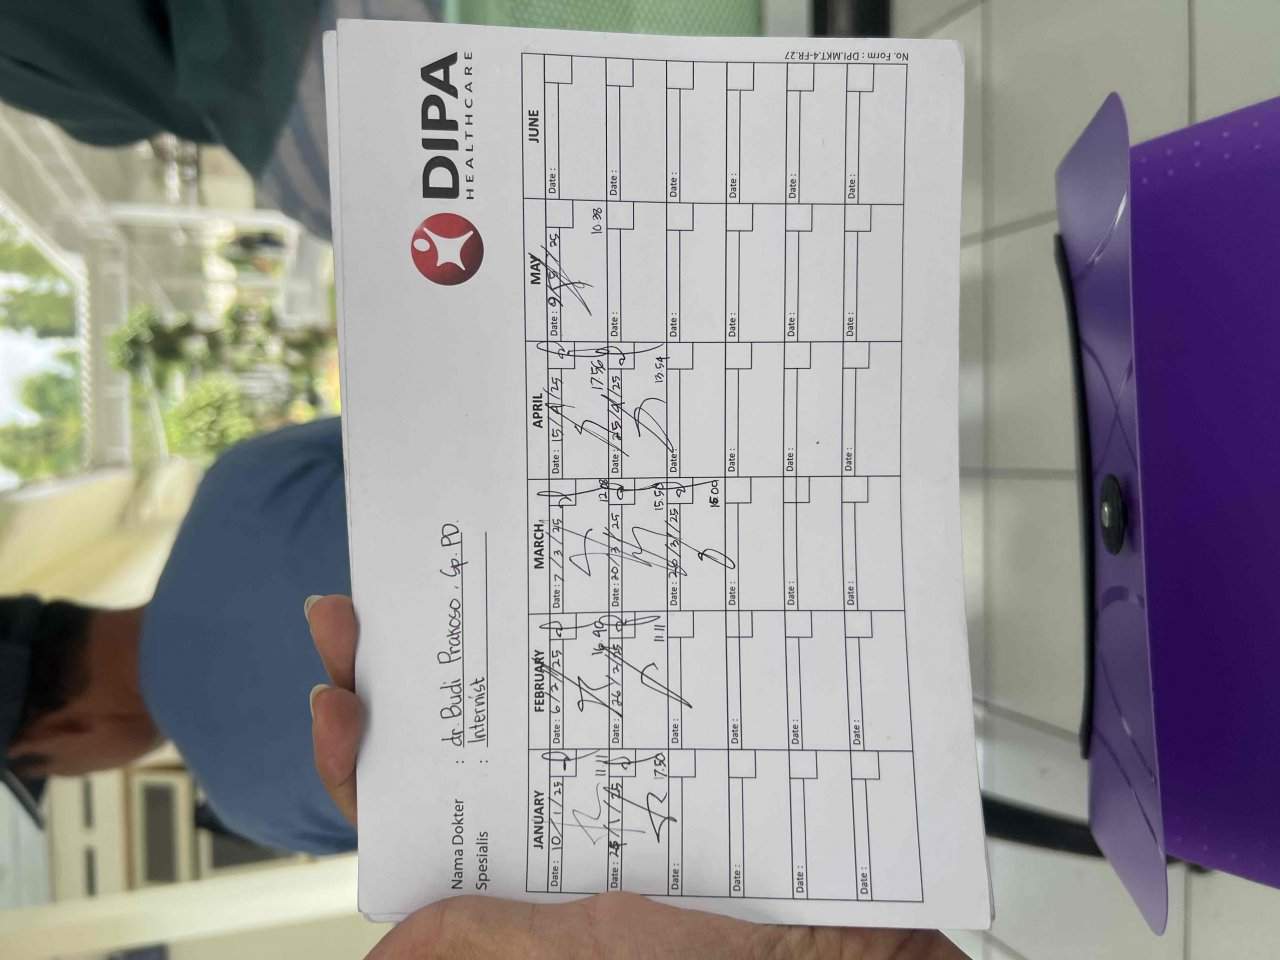 DIPA
HEALTHCARE
Nama Dokter : dr. Budi Prakoso, Sp. PD.
Spesialis : Internist
JANUARY FEBRUARY MARCH APRIL MAY JUNE
Date : 10/1/25 Date : 6/2/25 Date : 7/3/25 Date : 15/4/25 Date : 9/5/25 Date :
11.11 16.40 12.08 17.56 10.38
Date : /1/25 Date : 26/2/25 Date : 20/3/25 Date : 25/4/25 Date : Date :
17.50 11.11 15.50 13.54
Date : Date : Date : 26/3/25 Date : Date : Date :
Date : Date : Date : Date : Date : Date :
Date : Date : Date : Date : Date : Date :
Date : Date : Date : Date : Date : Date :
No. Form : DPI.MKT-4-FR.27